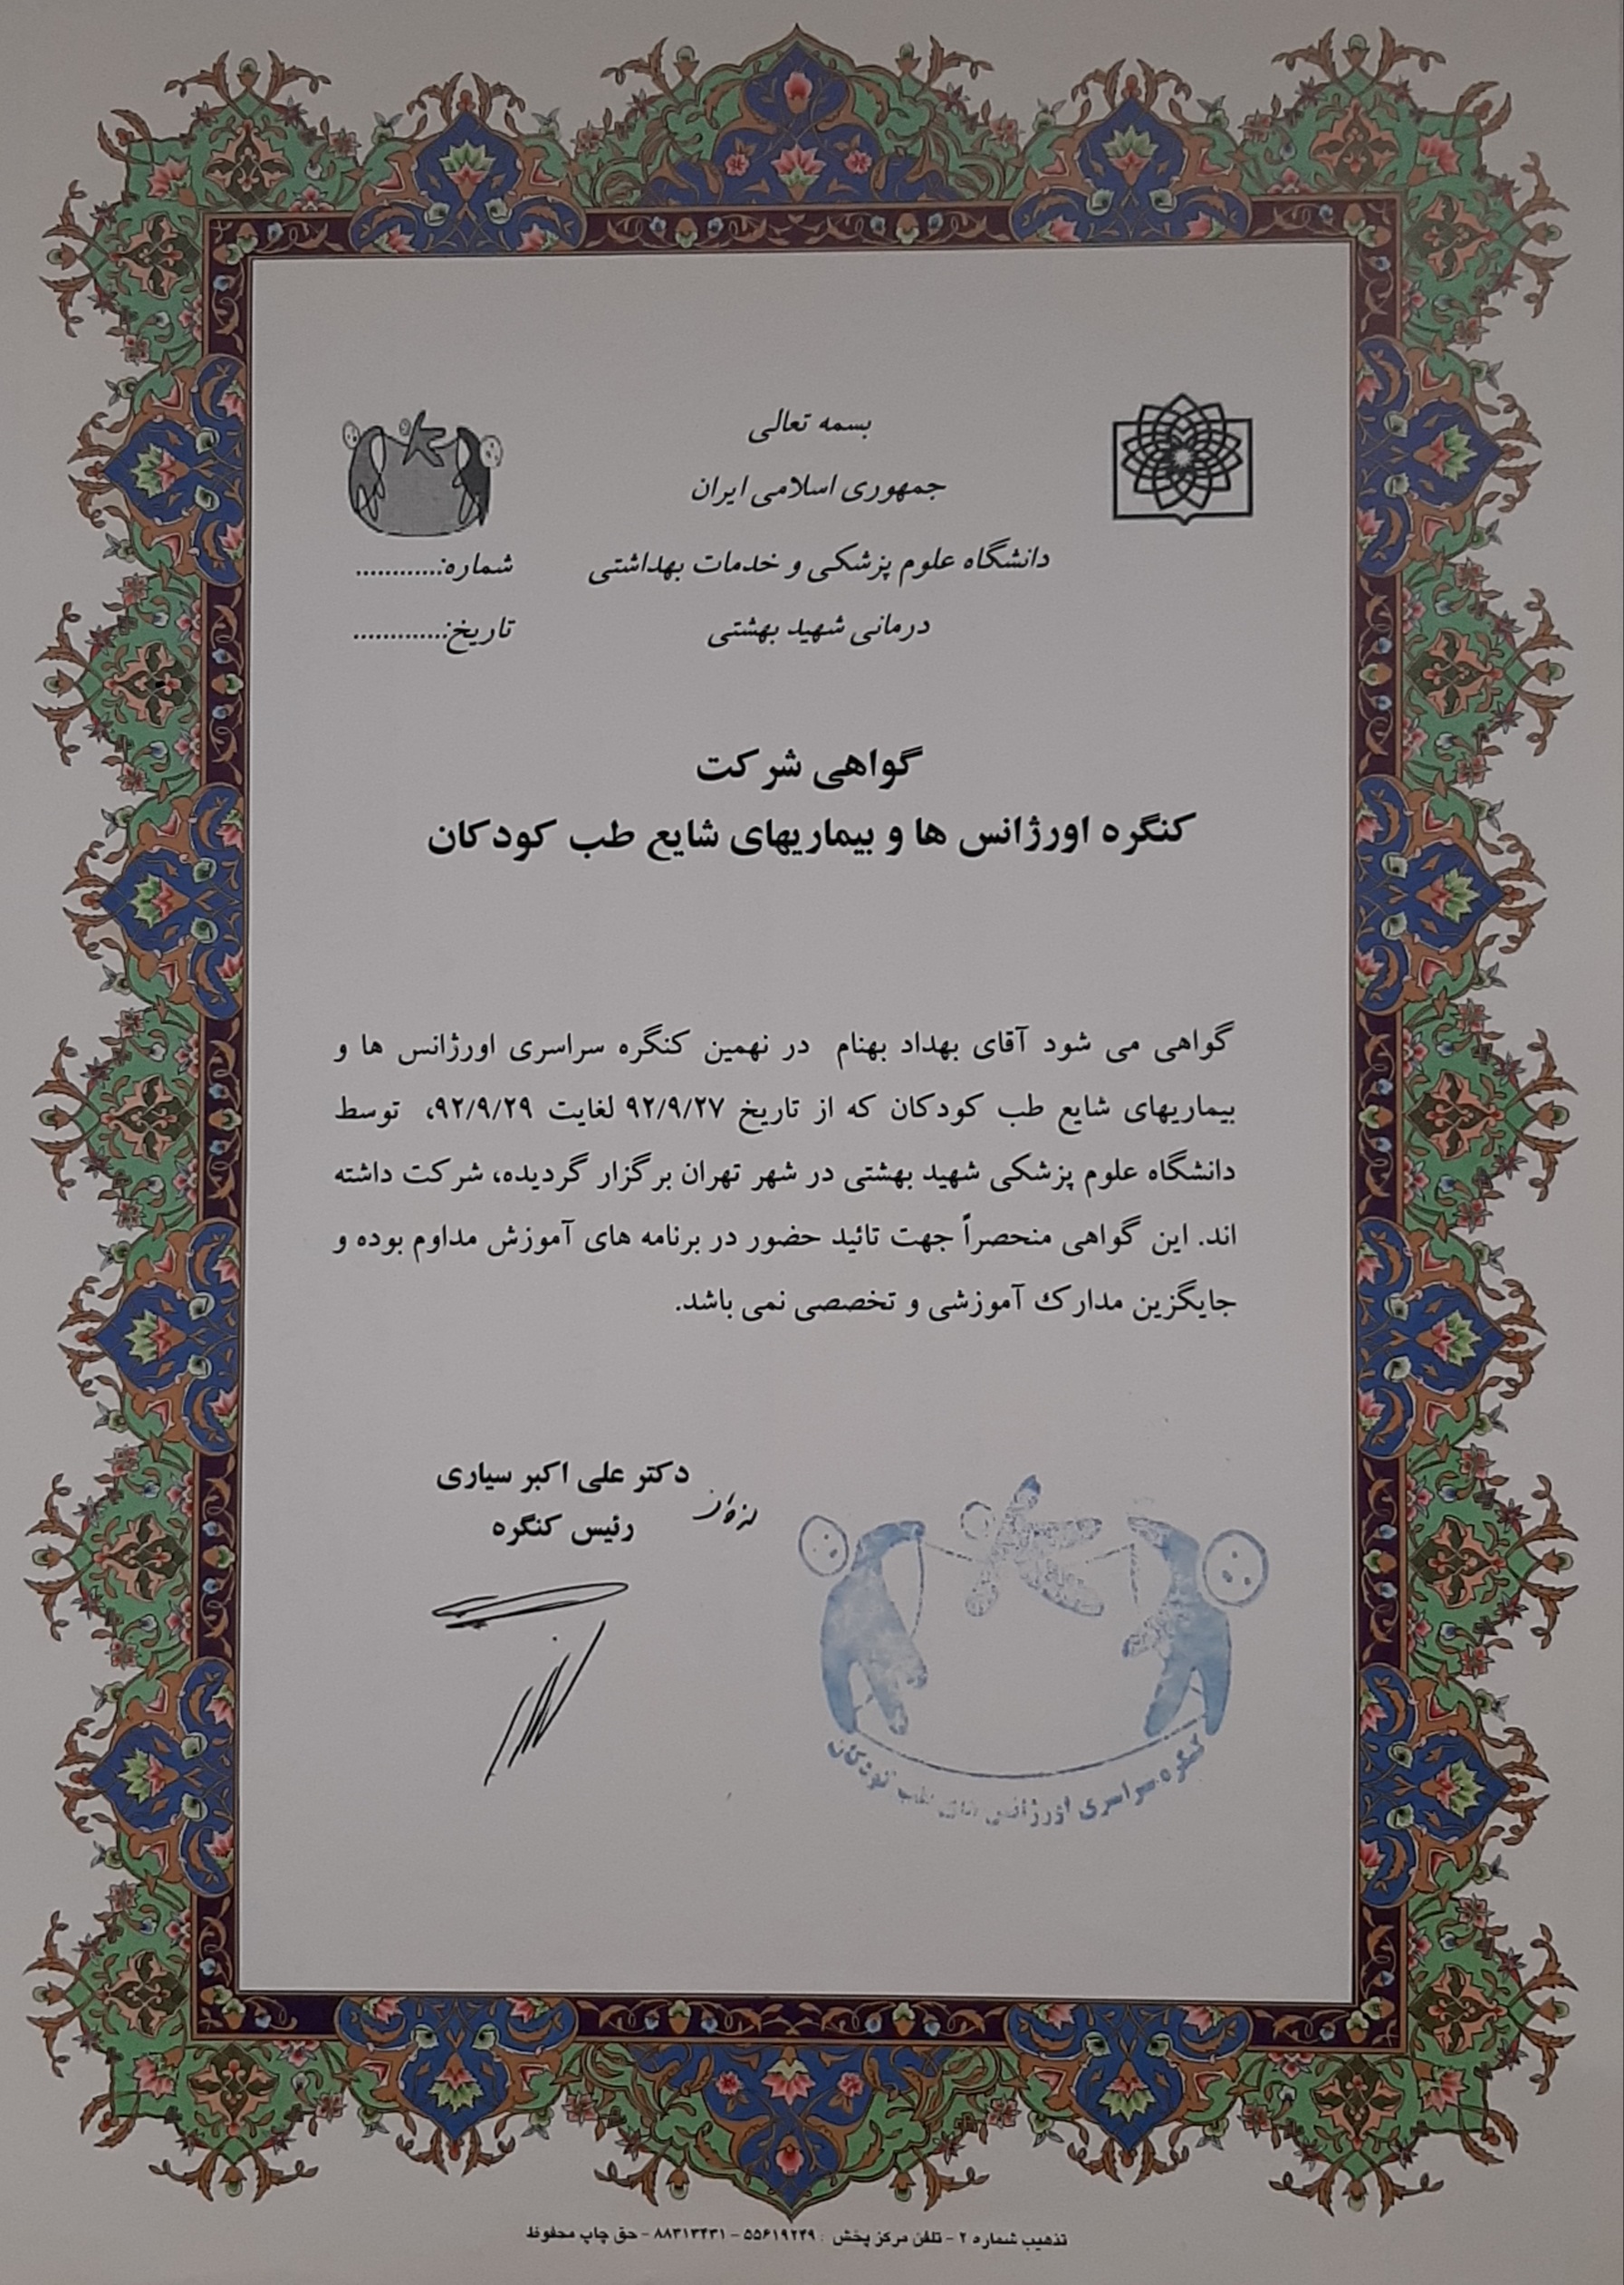 بسمه تعالی
جمهوری اسلامی ایران
دانشگاه علوم پزشکی و خدمات بهداشتی
درمانی شهید بهشتی
شماره:............
تاریخ:.............
گواهی شرکت
کنگره اورژانس ها و بیماریهای شایع طب کودکان
گواهی می شود آقای بهداد بهنام در نهمین کنگره سراسری اورژانس ها و
بیماریهای شایع طب کودکان که از تاریخ ۹۲/۹/۲۷ لغایت ۹۲/۹/۲۹، توسط
دانشگاه علوم پزشکی شهید بهشتی در شهر تهران برگزار گردیده، شرکت داشته
اند. این گواهی منحصراً جهت تائید حضور در برنامه های آموزش مداوم بوده و
جایگزین مدارک آموزشی و تخصصی نمی باشد.
دکتر علی اکبر سیاری
رئیس کنگره
کنگره سراسری اورژانس های طب کودکان
تذهیب شماره ۲ - تلفن مرکز پخش : ۵۵۶۱۹۲۴۹ - ۸۸۳۱۳۴۳۱ - حق چاپ محفوظ